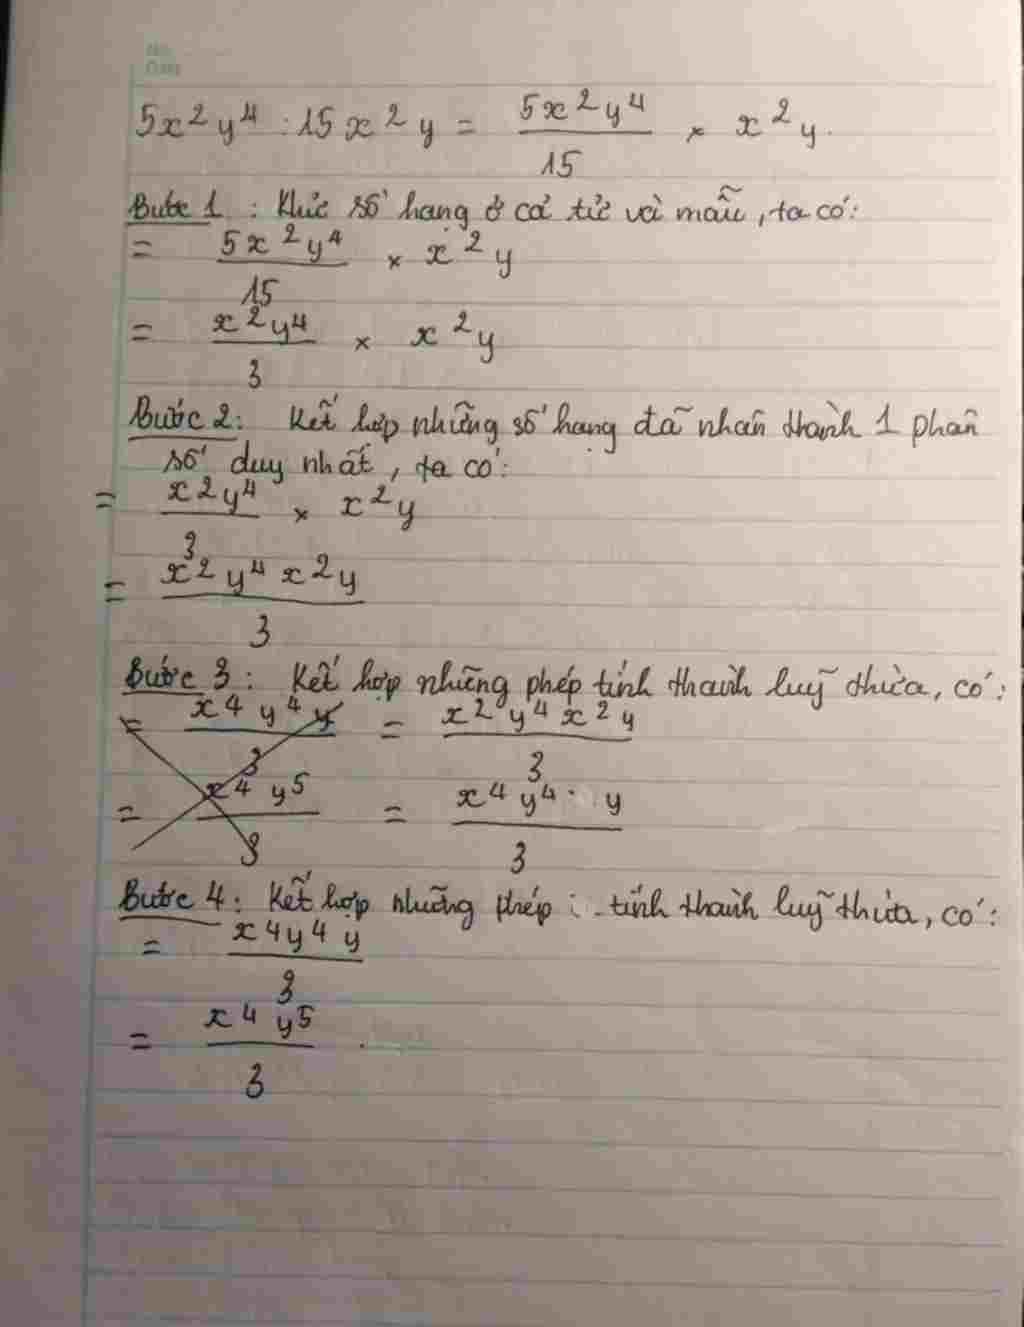 No.
Date
5x²y⁴ : 15x²y = 5x²y⁴/15 × x²y.
Bước 1 : Khức số hạng ở cả tử và mẫu, ta có:
= 5x²y⁴/15 × x²y
= x²y⁴/3 × x²y
Bước 2: Kết hợp những số hạng đã nhân thành 1 phân
số duy nhất, ta có:
= x²y⁴/3 × x²y
= x²y⁴x²y/3
Bước 3: Kết hợp những phép tính thành luỹ thừa, có:
= x⁴y⁴y/3 = x²y⁴x²y/3
= x⁴y⁵/3 = x⁴y⁴·y/3
Bước 4: Kết hợp những phép : tính thành luỹ thừa, có:
= x⁴y⁴y/3
= x⁴y⁵/3.